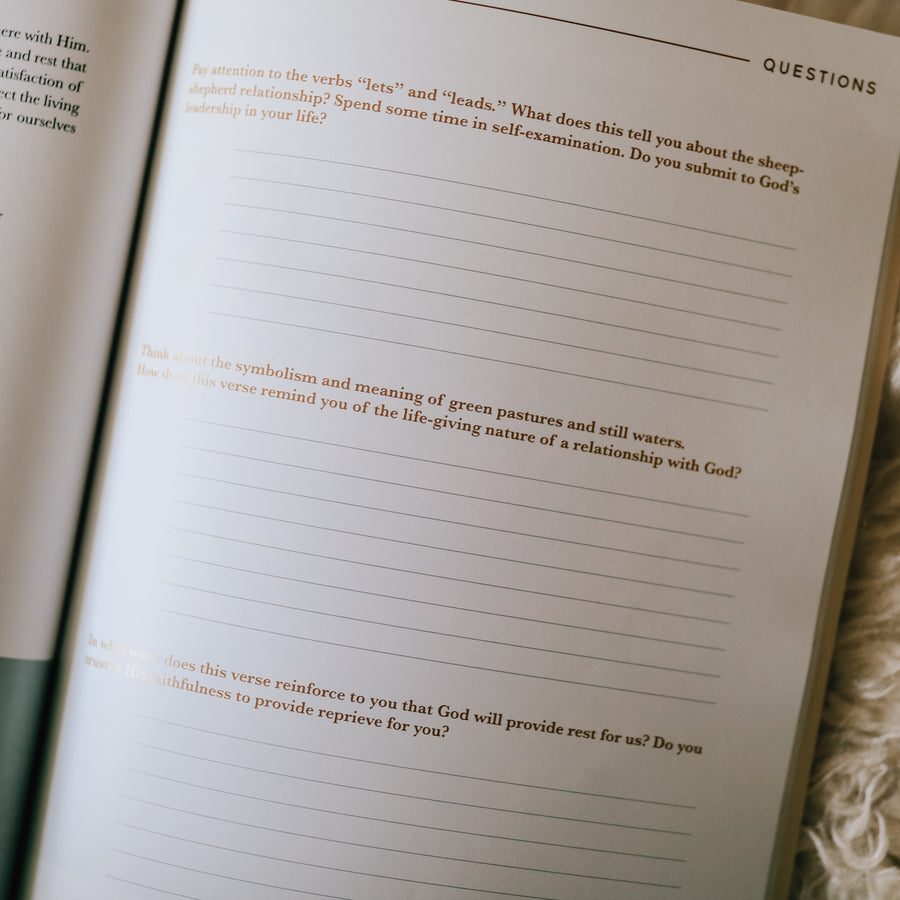 ere with Him.
and rest that
atisfaction of
ect the living
or ourselves
QUESTIONS
Pay attention to the verbs “lets” and “leads.” What does this tell you about the sheep-
shepherd relationship? Spend some time in self-examination. Do you submit to God’s
leadership in your life?
Think about the symbolism and meaning of green pastures and still waters.
How does this verse remind you of the life-giving nature of a relationship with God?
In what ways does this verse reinforce to you that God will provide rest for us? Do you
trust in His faithfulness to provide reprieve for you?